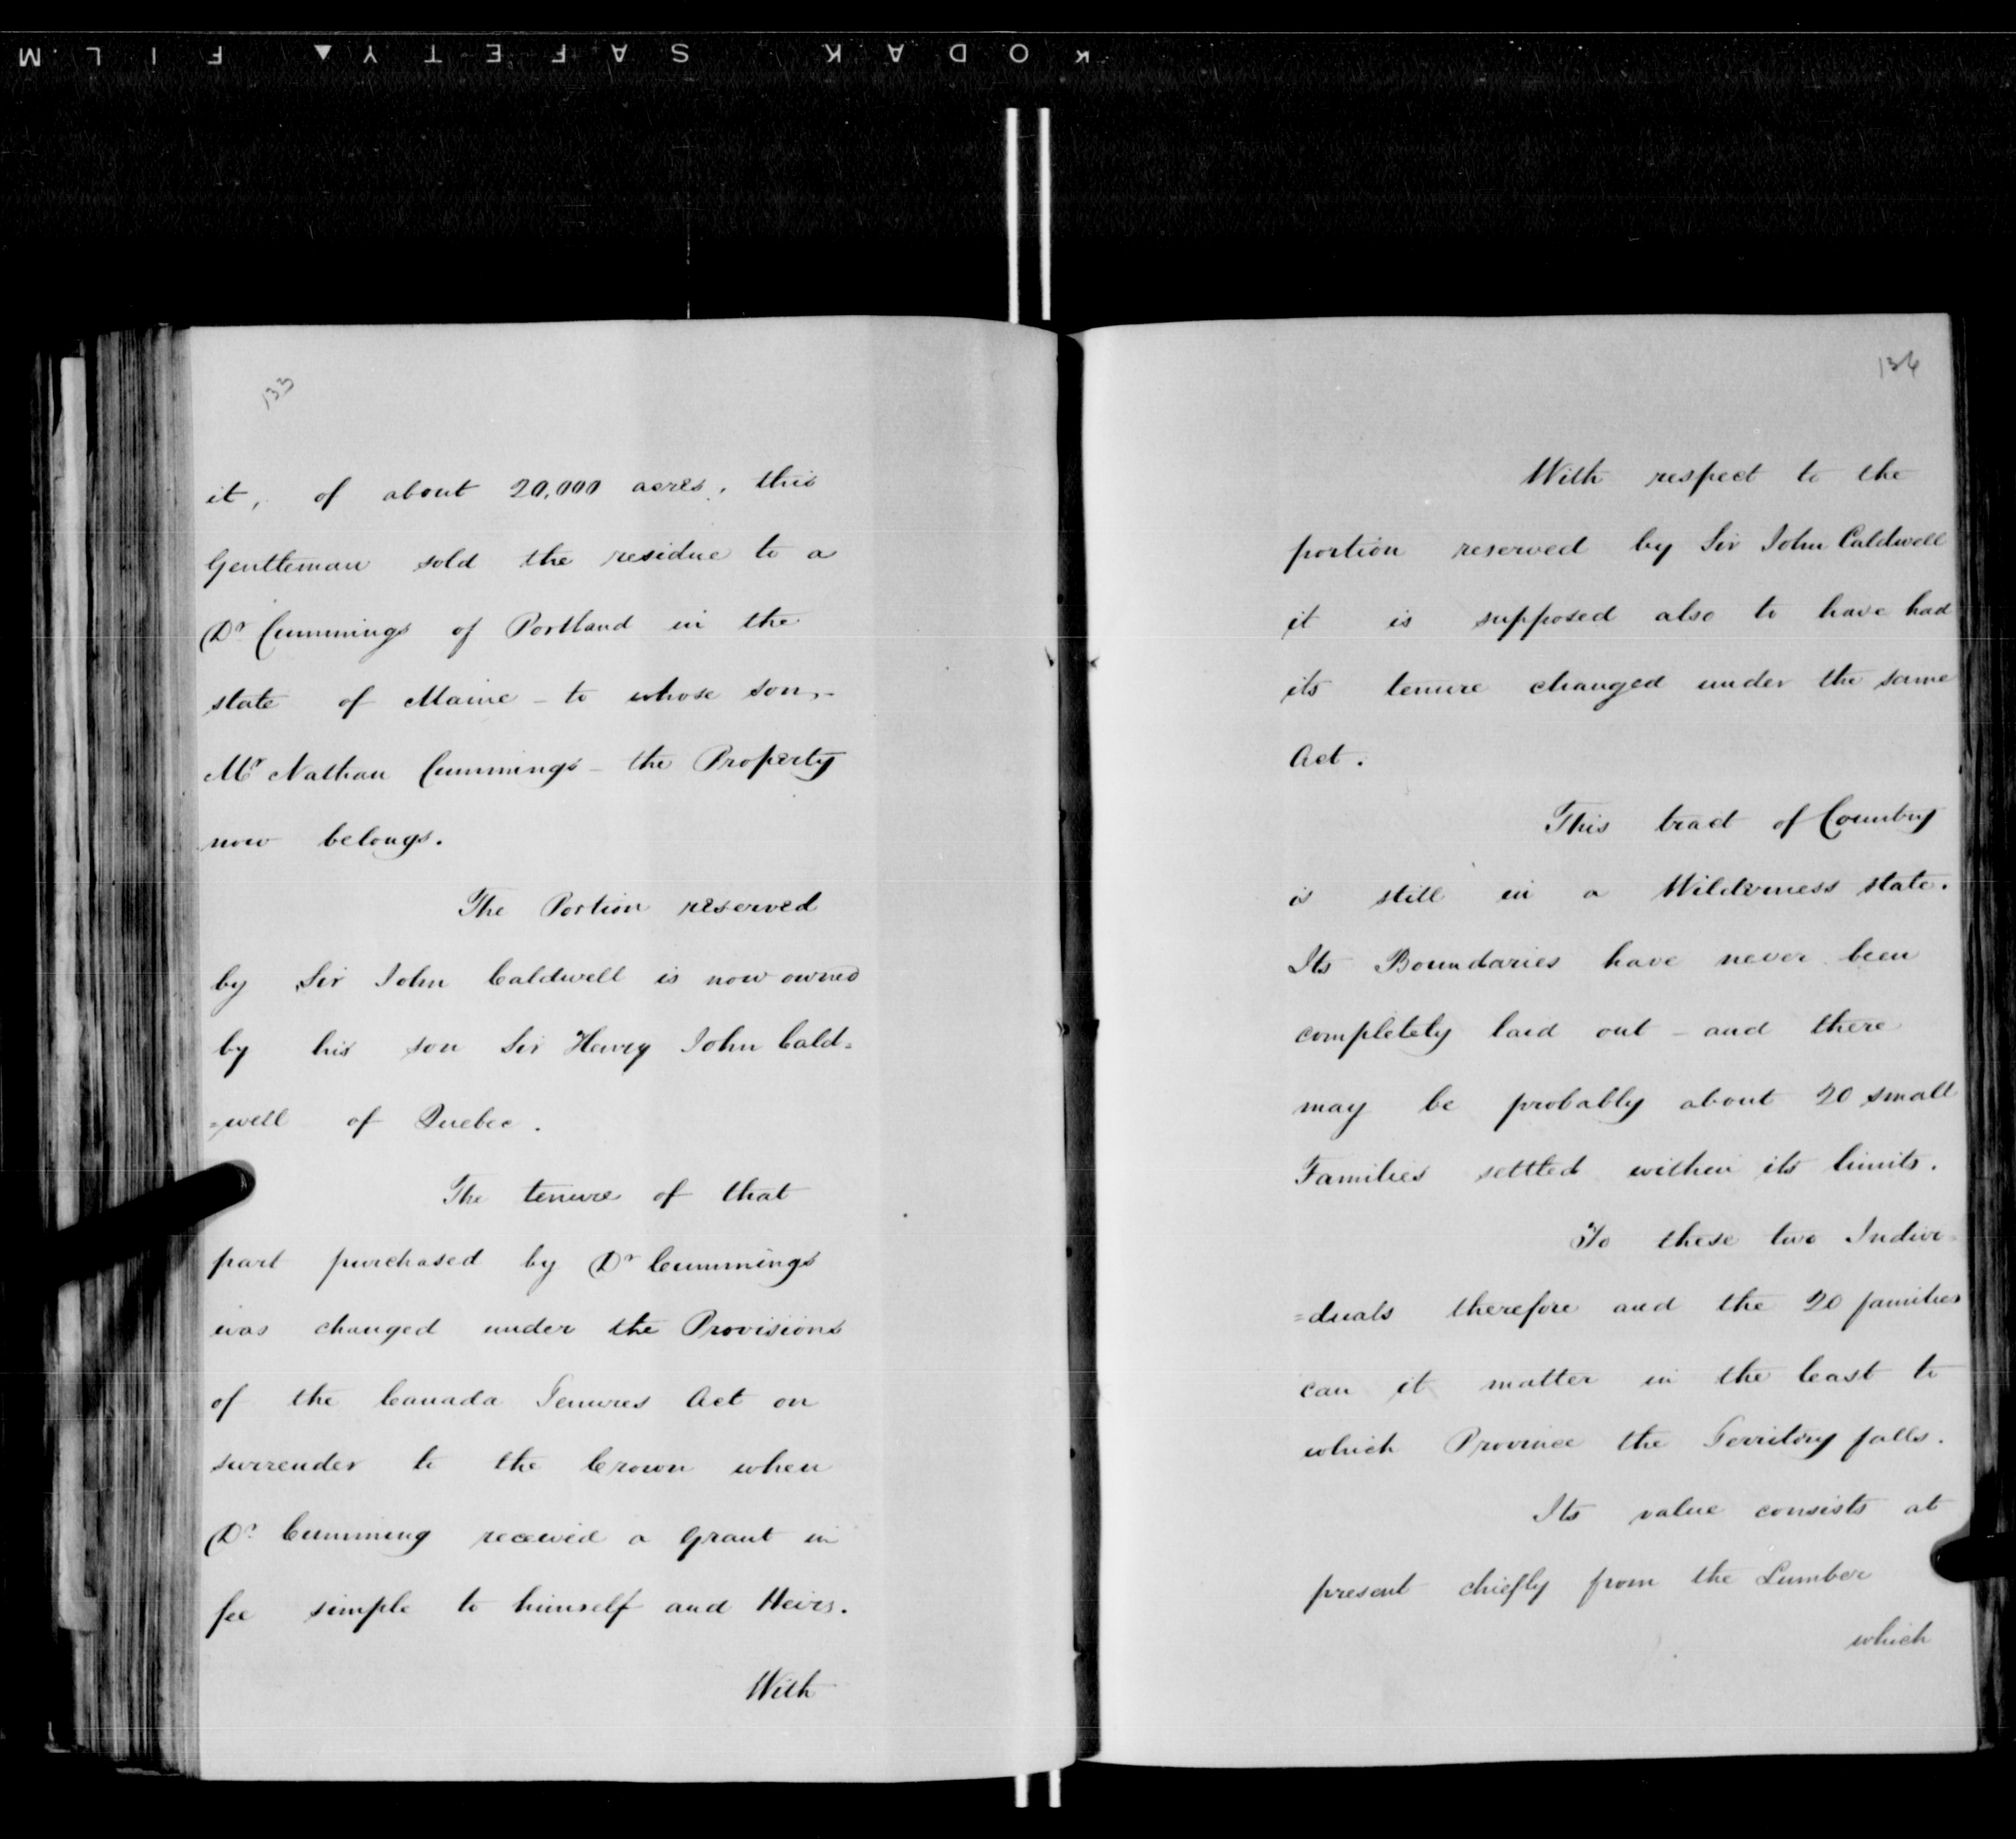 KODAK SAFETY ▲ FILM
133
it, of about 20,000 acres, this
Gentleman sold the residue to a
Dr Cummings of Portland in the
state of Maine – to whose son, –
Mr Nathan Cummings – the Property
now belongs.
The Portion reserved
by Sir John Caldwell is now owned
by his son Sir Henry John Cald=
=well of Quebec.
The tenure of that
part purchased by Dr Cummings
was changed under the Provisions
of the Canada Tenures Act on
surrender to the Crown when
Dr Cumming received a Grant in
fee simple to himself and Heirs.
With
134
With respect to the
portion reserved by Sir John Caldwell
it is supposed also to have had
its tenure changed under the same
Act.
This tract of Country
is still in a Wilderness state.
Its Boundaries have never been
completely laid out – and there
may be probably about 20 small
Families settled within its limits.
To these two Indivi=
=duals therefore and the 20 families
can it matter in the least to
which Province the Territory falls.
Its value consists at
present chiefly from the Lumber
which